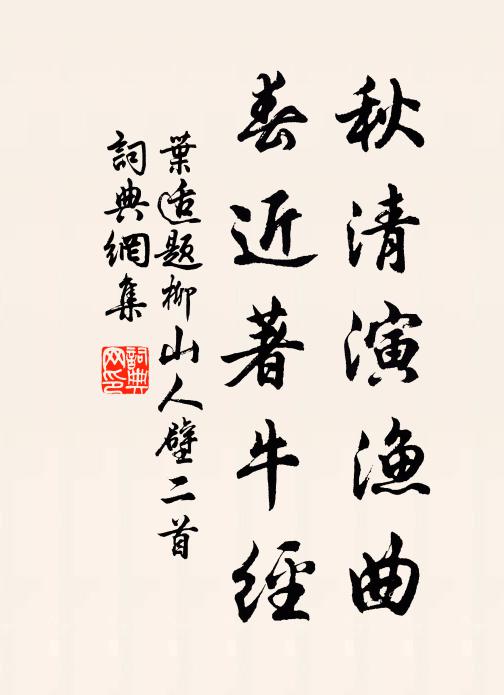 秋清演漁曲
春近著牛經
葉适題柳山人壁二首
詞典網集
詞典网印